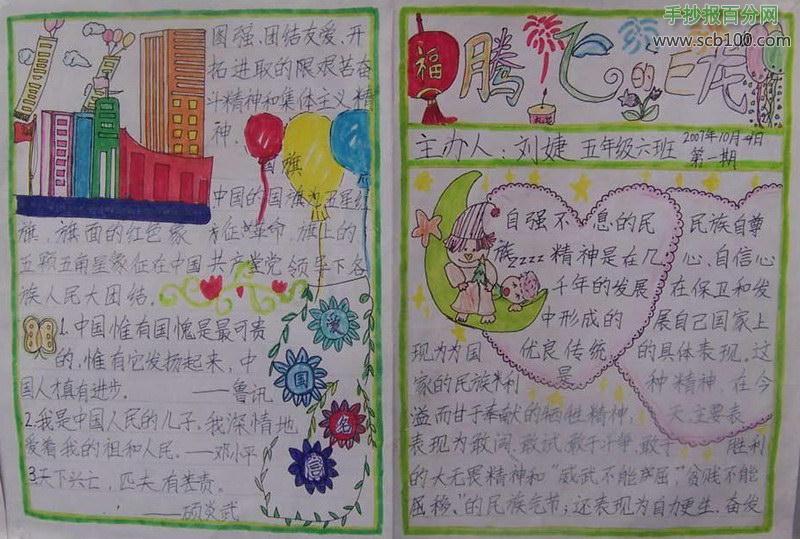 手抄报百分网
www.scb100.com
福
腾飞的巨龙
主办人：刘婕 五年级六班 2007年10月4日
第一期
自强不息的民
族zzzz精神是在几
千年的发展
中形成的
现为为国 优良传统
家的民族利 是
民族自尊
心、自信心
在保卫和发
展自己国家上
的具体表现。这
种精神在今
溢而甘于奉献的牺牲精神； 天主要表
表现为敢闯、敢试、敢于斗争、敢于 胜利
的大无畏精神和“威武不能屈”，“贫贱不能
屈移，”的民族气节；还表现为自力更生、奋发
图强、团结友爱、开
拓进取的限艰苦奋
斗精神和集体主义精
神。
国旗
中国的国旗为五星红
旗，旗面的红色象征革命，旗上的
五颗五角星象征在中国共产党领导下各
族人民大团结。
1.中国惟有国愧是最可贵
的，惟有它发扬起来，中
国人才真有进步。——鲁讯
2.我是中国人民的儿子。我深情地
爱着我的祖和人民。——邓小平
3.天下兴亡，匹夫有差责。
——顾炎武
爱
国
名
言